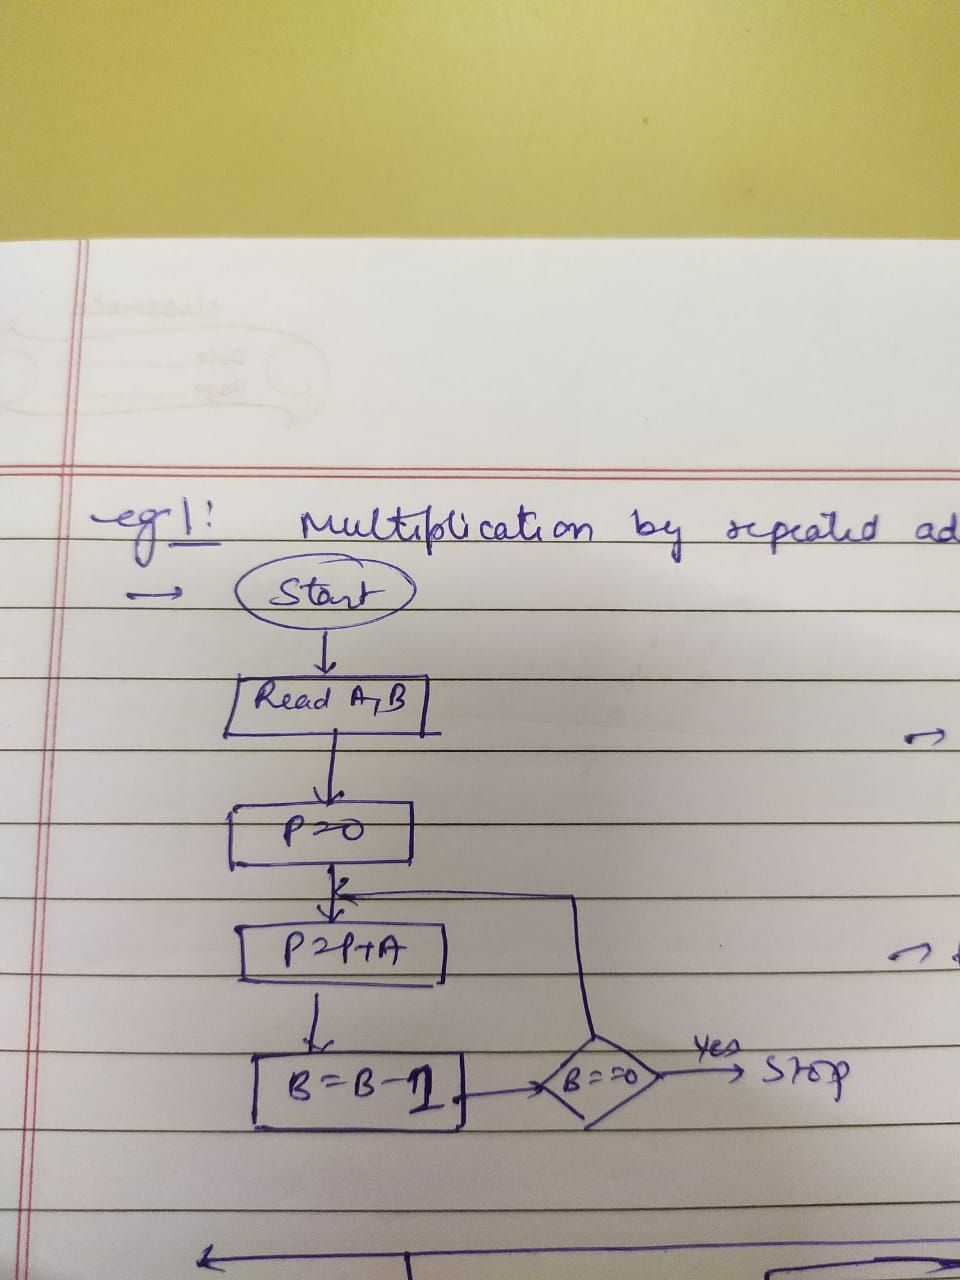 eg 1: Multiplication by repeated ad
Start
Read A, B
P=0
P=P+A
B=B-1
B==0
Yes
Stop